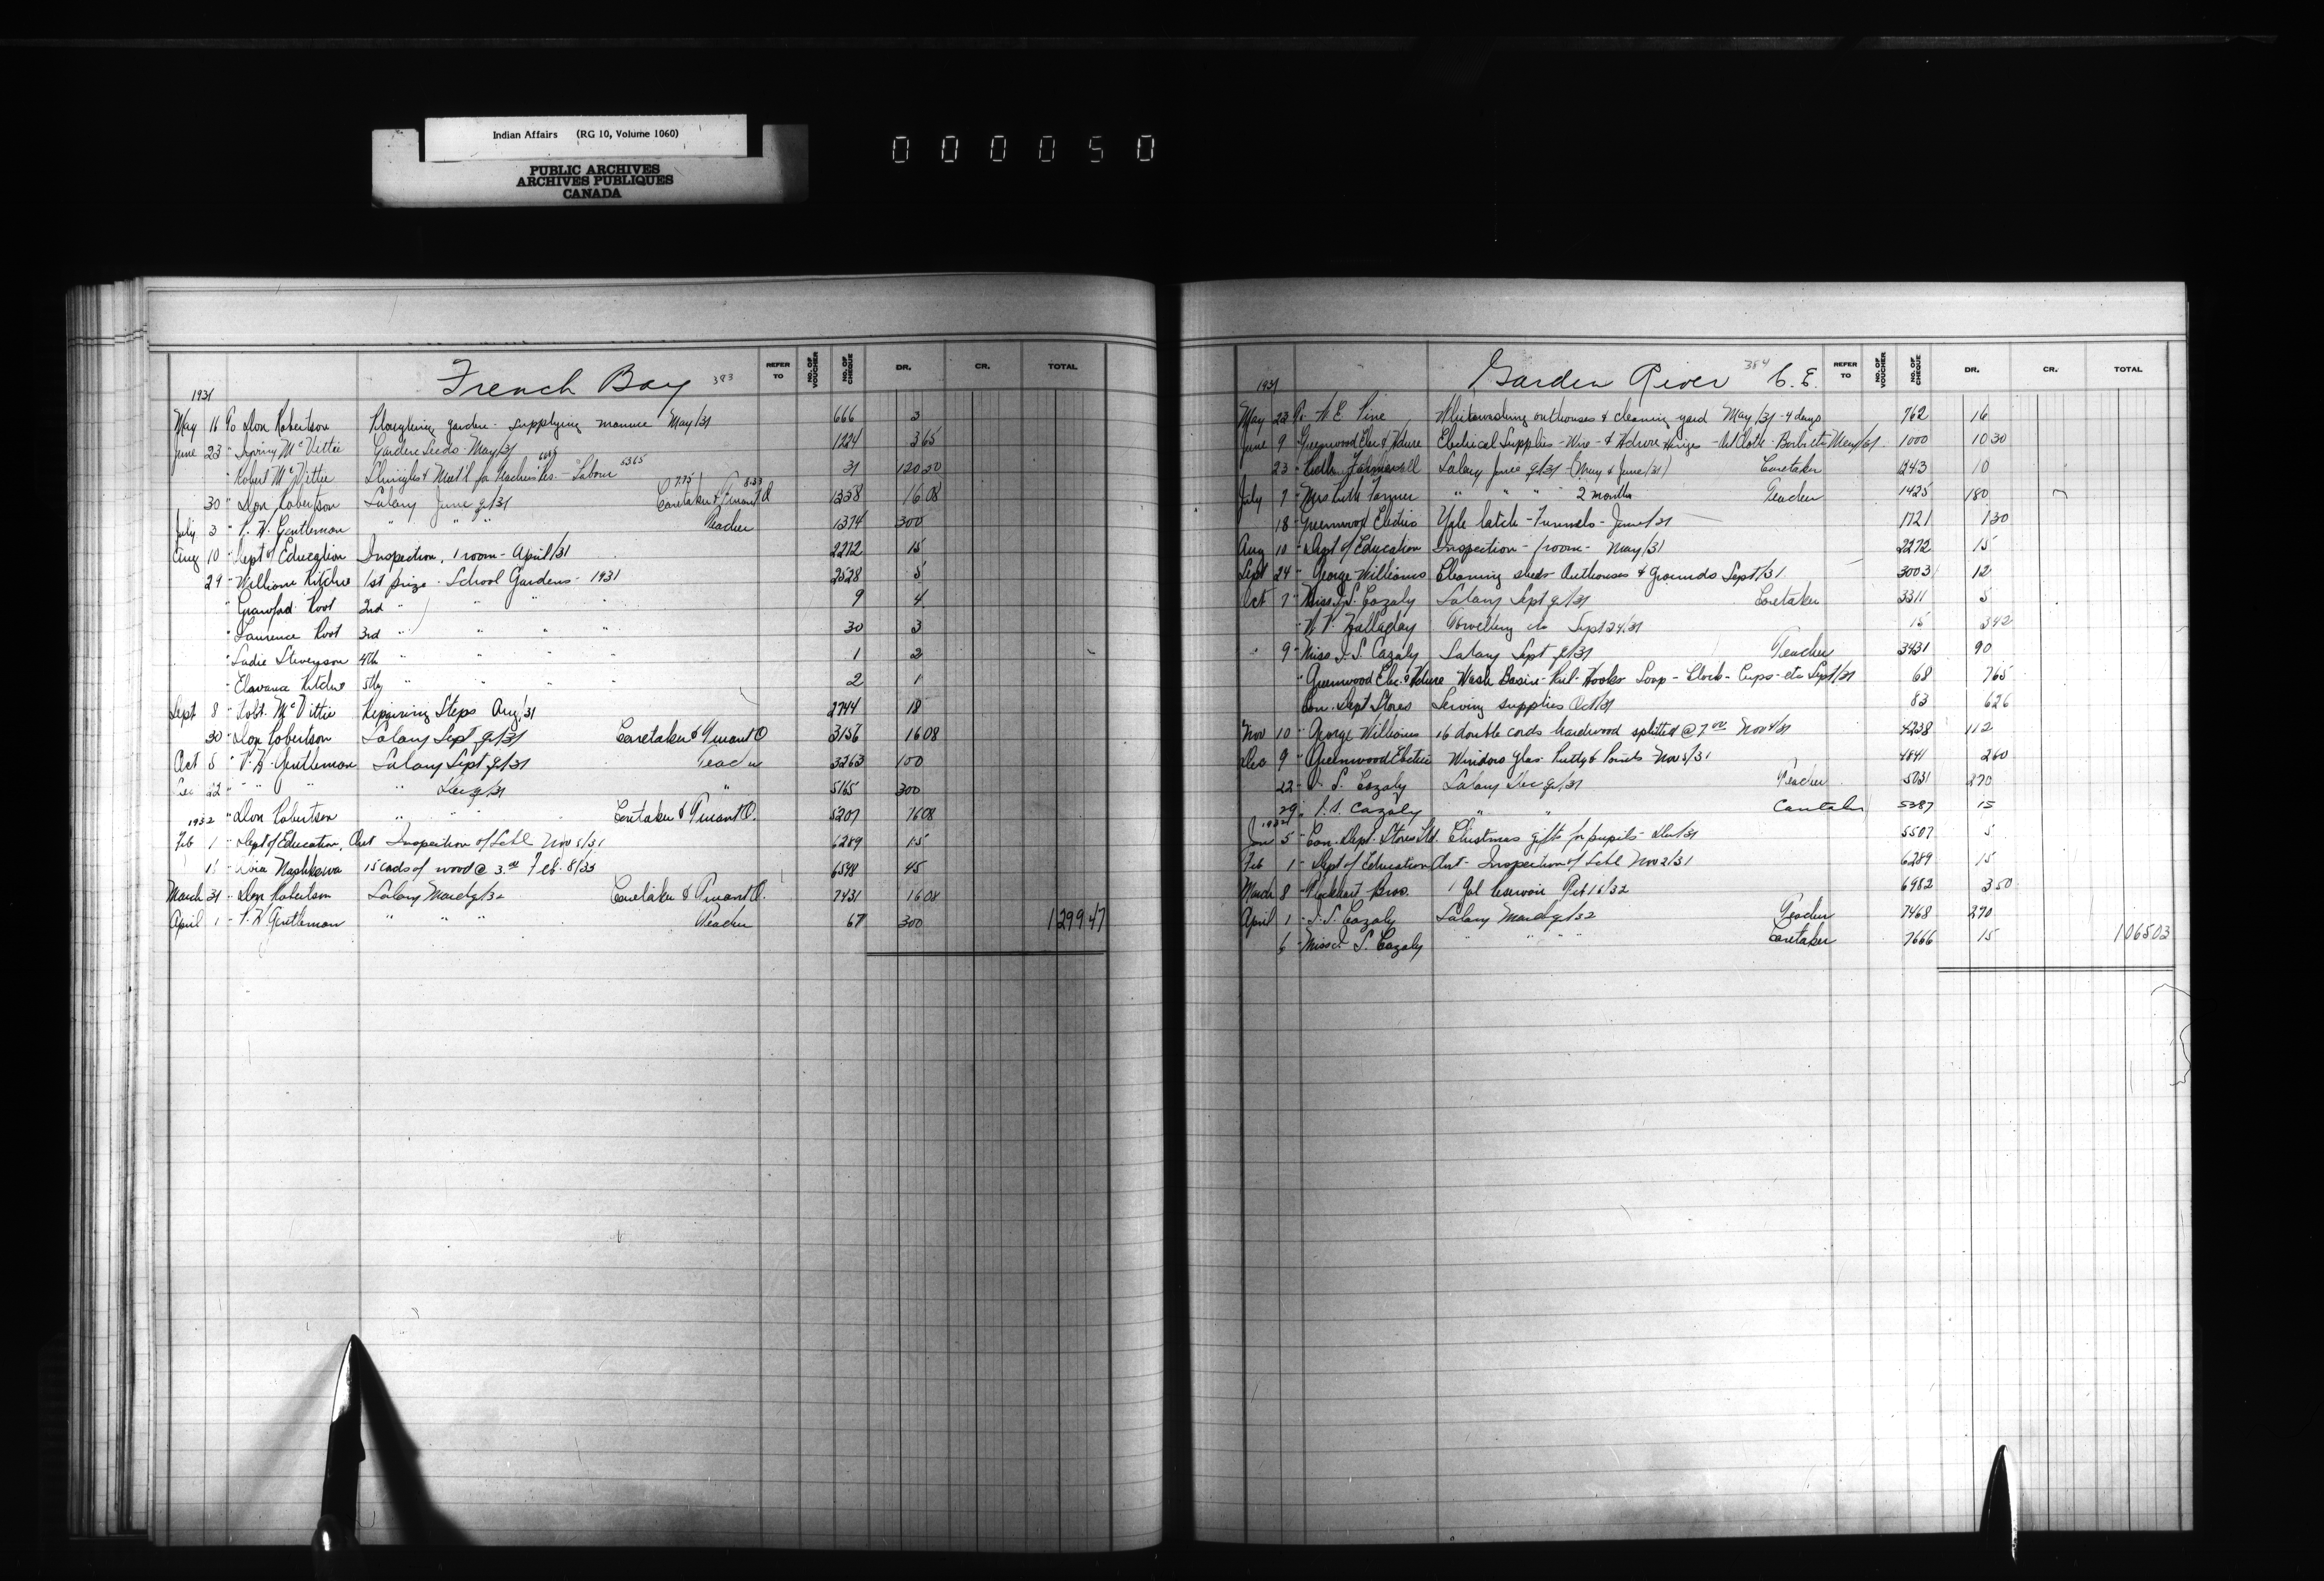 Indian Affairs (RG 10, Volume 1060)
PUBLIC ARCHIVES
ARCHIVES PUBLIQUES
CANADA
000050
French Bay 383
REFER TO NO. OF VOUCHER NO. OF CHEQUE DR. CR. TOTAL
1931
May 16 To Don Robertson Ploughing garden - supplying manure May/31 666 3
June 23 " Irving McVittie Garden Seeds - May/31 1224 3 65
" Robert McVittie Shingles & Mat'l for Teachers Res. - Labour 53 65 31 120 30
30 " Don Robertson Salary June q/31 7.75 8.33 Caretaker & Truant O 1338 16 08
July 3 " P. H. Gentleman " " " Teacher 1374 300
Aug 10 " Dept of Education Inspection, 1 room - April/31 2272 15
29 " William Kitche 1st prize - School Gardens - 1931 2528 5
" Crawford Root 2nd " " " " 9 4
" Laurence Root 3rd " " " " 30 3
" Sadie Stevenson 4th " " " " 1 2
" Kitche 5th " " " " 2 1
Sept 8 " Robt. McVittie Repairing Steps Aug/31 2744 18
30 " Don Robertson Salary Sept q/31 Caretaker & Truant O 3156 16 08
Oct 5 " P. H. Gentleman Salary Sept q/31 Teacher 3263 100
Dec 22 " " " " Dec q/31 " 5165 300
1932 " Don Robertson " " Caretaker & Truant O. 5207 16 08
Feb 1 " Dept of Education, Ont Inspection of Schl Nov 5/31 6289 15
15 cords of wood @ 3.00 Feb. 8/32 6548 45
March 31 " Don Robertson Salary March q/32 Caretaker & Truant O. 7431 16 08
April 1 " P. H. Gentleman " " " Teacher 67 300 1299 47
Garden River 384 C. E.
REFER TO NO. OF VOUCHER NO. OF CHEQUE DR. CR. TOTAL
1931
May 23 To W. E. Pine Whitewashing outhouses & cleaning yard May/31 - 4 days 762 16
June 9 " Greenwood Elec & Hdwre Electrical Supplies - Wire - & Hdwre Hinges - Oil Cloth - etc May/31 1000 10 30
23 " Salary June q/31 (May & June/31) Caretaker 1243 10
July 7 " Mrs Ruth Farmer " " " " 2 months Teacher 1425 180
18 " Greenwood Electric Yale latch - Funnels - June/31 1721 1 30
Aug 10 " Dept of Education Inspection - 1 room - May/31 2272 15
Sept 24 " George Williams Cleaning sheds - Outhouses & Grounds Sept/31 3003 12
Oct 7 " Miss I. S. Cazaly Salary Sept q/31 Caretaker 3311 5
" Towelling etc Sept 24/31 15 3 42
" 9 " Miss I. S. Cazaly Salary Sept q/31 Teacher 3431 90
" Greenwood Elec. & Hdwre Wash Basin - Pail - Hooks Soap - Clock - Cups - etc Sept/31 68 7 65
Can. Dept Stores Sewing supplies Oct/31 83 6 26
Nov 10 " George Williams 16 double cords hardwood splitted @ 7.00 Nov 4/31 4238 112
Dec 9 " Greenwood Electric Window Glass Putty & Points Nov 5/31 4841 2 60
22 " I. S. Cazaly Salary Dec q/31 Teacher 5031 270
29 " I. S. Cazaly " " Caretaker 5387 15
1932
Jan 5 " Can. Dept. Stores Ltd. Christmas gifts for pupils - Dec/31 5507 5
Feb 1 " Dept of Education Ont - Inspection of Schl Nov 2/31 6289 15
March 8 " Lockhart Bros. 1 Gal Feb 16/32 6982 3 50
April 1 " I. S. Cazaly Salary March q/32 Teacher 7468 270
6 " Miss I. S. Cazaly " " " " Caretaker 7666 15 1065 03